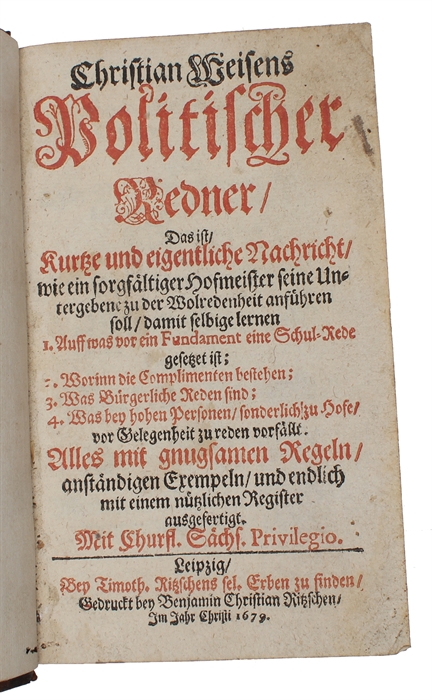 Christian Weisens
Politischer
Redner/
Das ist/
Kurtze und eigentliche Nachricht/
wie ein sorgfältiger Hofmeister seine Un-
tergebene zu der Wolredenheit anführen
soll/ damit selbige lernen
1. Auff was vor ein Fundament eine Schul-Rede
gesetzet ist;
2. Worinn die Complimenten bestehen;
3. Was Bürgerliche Reden sind;
4. Was bey hohen Personen/ sonderlich zu Hofe/
vor Gelegenheit zu reden vorfällt.
Alles mit gnugsamen Regeln/
anständigen Exempeln/ und endlich
mit einem nützlichen Register
ausgefertigt.
Mit Churfl. Sächs. Privilegio.
Leipzig/
Bey Timoth. Ritzschens sel. Erben zu finden/
Gedruckt bey Benjamin Christian Ritzschen/
Im Jahr Christi 1679.